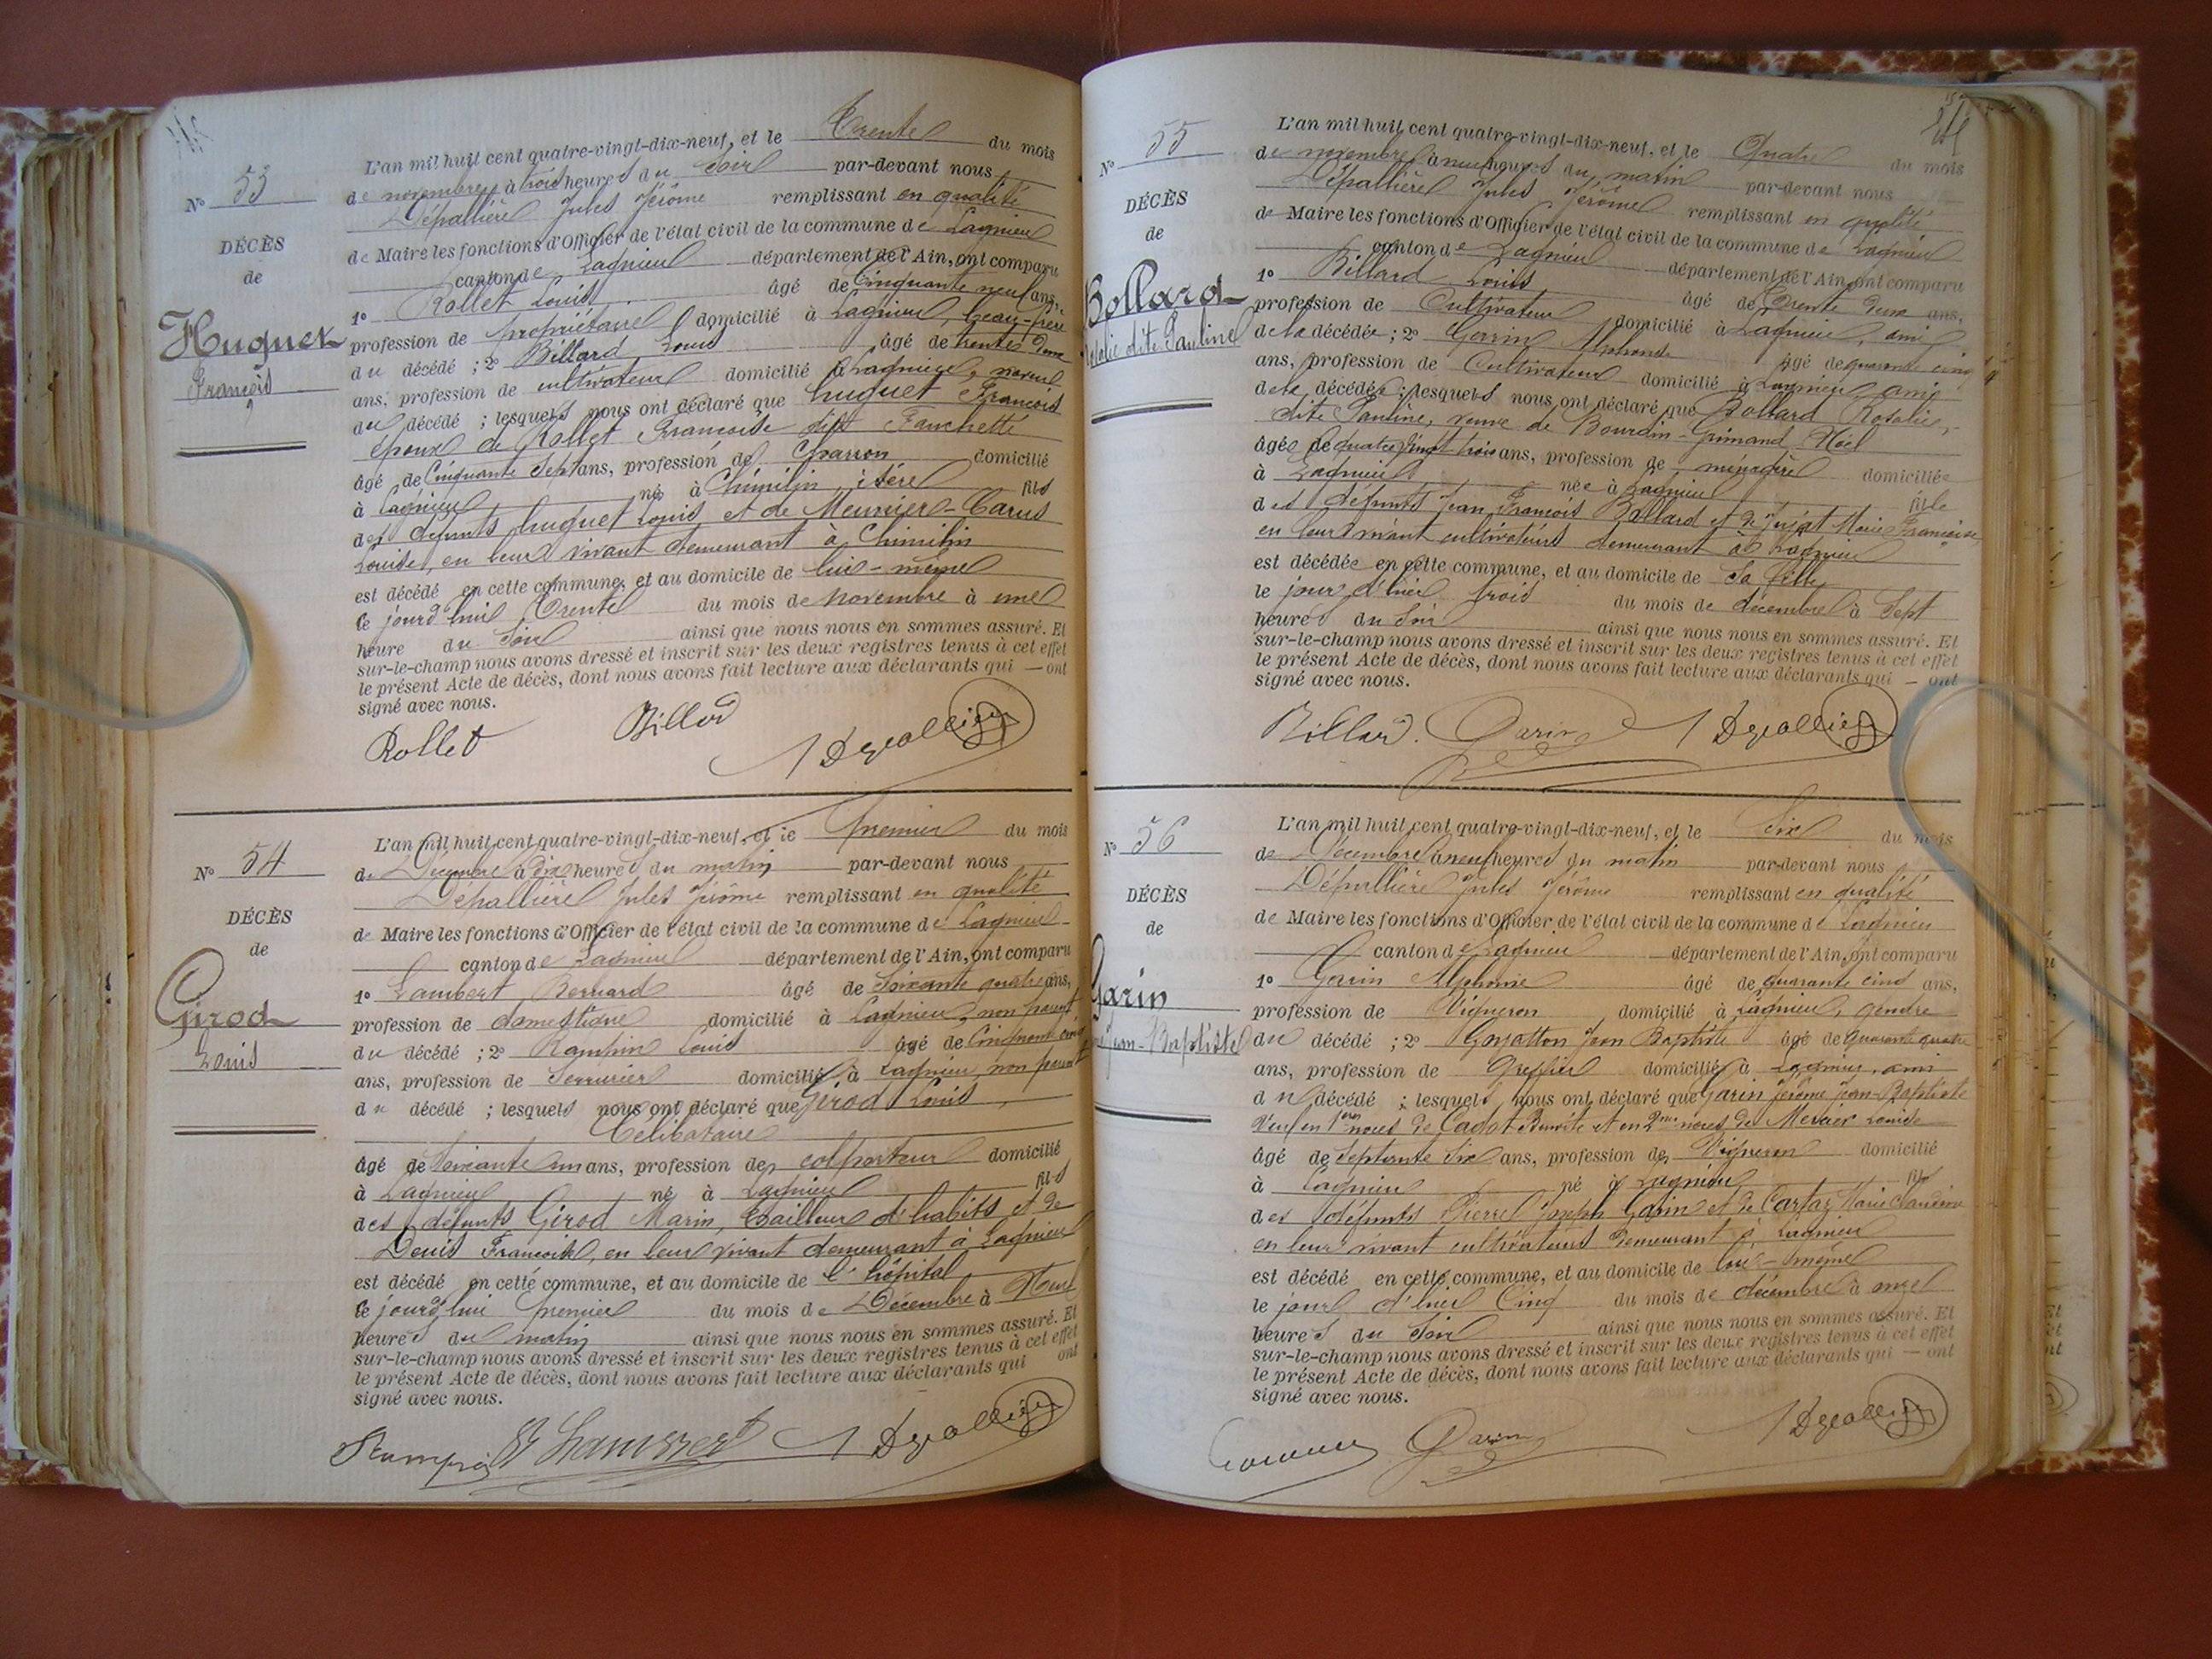 Nº 53
DÉCÈS
de
Huguet
François
L'an mil huit cent quatre-vingt-dix-neuf, et le Trente du mois
de novembre, à trois heures du Soir par-devant nous
Dépallière Jules Jérôme remplissant en qualité
de Maire les fonctions d'Officier de l'état civil de la commune de Lagnieu
canton de Lagnieu département de l'Ain, ont comparu
1º Rollet Louis âgé de Cinquante neuf ans,
profession de propriétaire domicilié à Lagnieu, beau-frère
du décédé ; 2º Billard Louis âgé de trente deux
ans, profession de cultivateur domicilié à Lagnieu, neveu
du décédé ; lesquels nous ont déclaré que huguet François
époux de Rollet Françoise dite Fanchette
âgé de Cinquante Sept ans, profession de Charron domicilié
à Lagnieu né à Chimilin, isère fils
des défunts huguet Louis et de Meunier-Carus
Louise, en leur vivant demeurant à Chimilin
est décédé en cette commune, et au domicile de lui-même
le jourd'hui Trente du mois de novembre à une
heure du Soir ainsi que nous nous en sommes assuré. Et
sur-le-champ nous avons dressé et inscrit sur les deux registres tenus à cet effet
le présent Acte de décès, dont nous avons fait lecture aux déclarants qui — ont
signé avec nous.
Rollet Billard J Depallière
Nº 54
DÉCÈS
de
Girod
Louis
L'an mil huit cent quatre-vingt-dix-neuf, et le premier du mois
de Décembre à dix heures du matin par-devant nous
Dépallière Jules Jérôme remplissant en qualité
de Maire les fonctions d'Officier de l'état civil de la commune de Lagnieu
canton de Lagnieu département de l'Ain, ont comparu
1º Lambert Bernard âgé de Soixante quatre ans,
profession de domestique domicilié à Lagnieu, non parent
du décédé ; 2º Louis âgé de Cinquante cinq
ans, profession de Serrurier domicilié à Lagnieu, non parent
du décédé ; lesquels nous ont déclaré que Girod Louis,
Célibataire
âgé de Soixante un ans, profession de colporteur domicilié
à Lagnieu né à Lagnieu fils
des défunts Girod Marin, tailleur d'habits et de
Denis Françoise, en leur vivant demeurant à Lagnieu
est décédé en cette commune, et au domicile de l'hôpital
le jourd'hui premier du mois de Décembre à Neuf
heures du matin ainsi que nous nous en sommes assuré. Et
sur-le-champ nous avons dressé et inscrit sur les deux registres tenus à cet effet
le présent Acte de décès, dont nous avons fait lecture aux déclarants qui ont
signé avec nous.
J Depallière
Nº 55
DÉCÈS
de
Bollard
Rosalie dite Pauline
L'an mil huit cent quatre-vingt-dix-neuf, et le Quatre du mois
de novembre à neuf heures du matin par-devant nous
Dépallière Jules Jérôme remplissant en qualité
de Maire les fonctions d'Officier de l'état civil de la commune de Lagnieu
canton de Lagnieu département de l'Ain, ont comparu
1º Billard Louis âgé de Trente deux ans,
profession de Cultivateur domicilié à Lagnieu, ami
de la décédée ; 2º Garin Alphonse âgé de quarante cinq
ans, profession de Cultivateur domicilié à Lagnieu ami
de la décédée ; lesquels nous ont déclaré que Bollard Rosalie,
dite Pauline, veuve de Bourdin-Grimand Noël
âgée de quatre vingt trois ans, profession de ménagère domiciliée
à Lagnieu née à Lagnieu fille
des défunts Jean François Bollard et de Marie Françoise
en leur vivant cultivateurs demeurant à Lagnieu
est décédée en cette commune, et au domicile de Sa fille
le jour d'hier trois du mois de décembre à Sept
heures du Soir ainsi que nous nous en sommes assuré. Et
sur-le-champ nous avons dressé et inscrit sur les deux registres tenus à cet effet
le présent Acte de décès, dont nous avons fait lecture aux déclarants qui — ont
signé avec nous.
Billard. Garin J Depallière
Nº 56
DÉCÈS
de
Garin
Jean-Baptiste
L'an mil huit cent quatre-vingt-dix-neuf, et le Six du mois
de Décembre à neuf heures du matin par-devant nous
Dépallière Jules Jérôme remplissant en qualité
de Maire les fonctions d'Officier de l'état civil de la commune de Lagnieu
canton de Lagnieu département de l'Ain, ont comparu
1º Garin Alphonse âgé de quarante cinq ans,
profession de Vigneron domicilié à Lagnieu, gendre
du décédé ; 2º Goyatton Jean Baptiste âgé de quarante quatre
ans, profession de Greffier domicilié à Lagnieu, ami
du décédé ; lesquels nous ont déclaré que Garin Jérôme Jean-Baptiste
Veuf en 1ères noces de Cadot Benoîte et en 2mes noces de Mercier Louise
âgé de Septante Six ans, profession de Vigneron domicilié
à Lagnieu né à Lagnieu fils
des défunts Pierre Joseph Garin et de Cartaz Marie Claudine
en leur vivant cultivateurs demeurant à Lagnieu
est décédé en cette commune, et au domicile de lui-même
le jour d'hier Cinq du mois de décembre à onze
heures du Soir ainsi que nous nous en sommes assuré. Et
sur-le-champ nous avons dressé et inscrit sur les deux registres tenus à cet effet
le présent Acte de décès, dont nous avons fait lecture aux déclarants qui — ont
signé avec nous.
Garin J Depallière